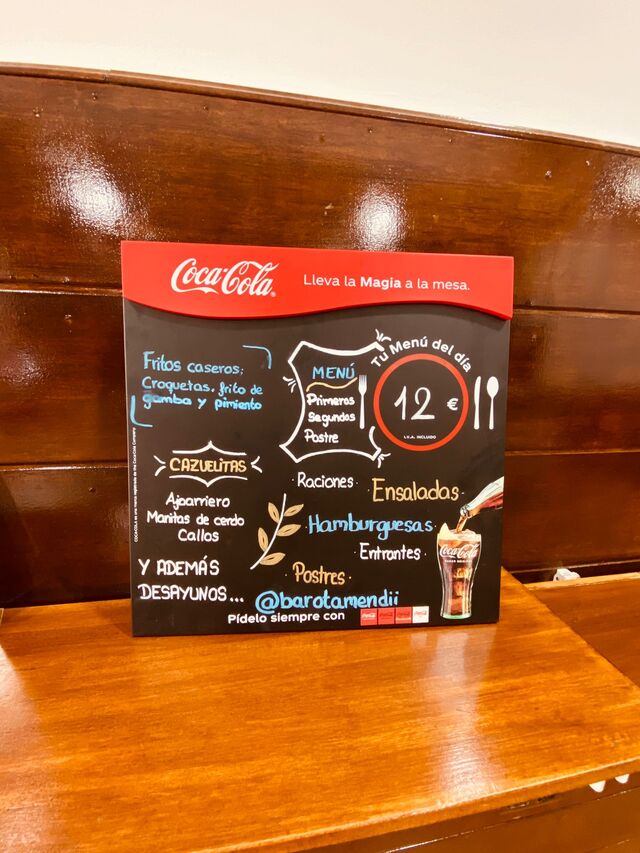 Coca-Cola
Lleva la Magia a la mesa.
Fritos caseros:
Croquetas, frito de
gamba y pimiento
MENÚ
Primeros
Segundos
Postre
Tu Menú del día
12 €
I.V.A. INCLUIDO
CAZUELITAS
Ajoarriero
Manitas de cerdo
Callos
· Raciones ·
Ensaladas
· Hamburguesas ·
Entrantes ·
· Postres ·
Y ADEMÁS
DESAYUNOS...
@barotamendii
Pídelo siempre con
Coca-Cola